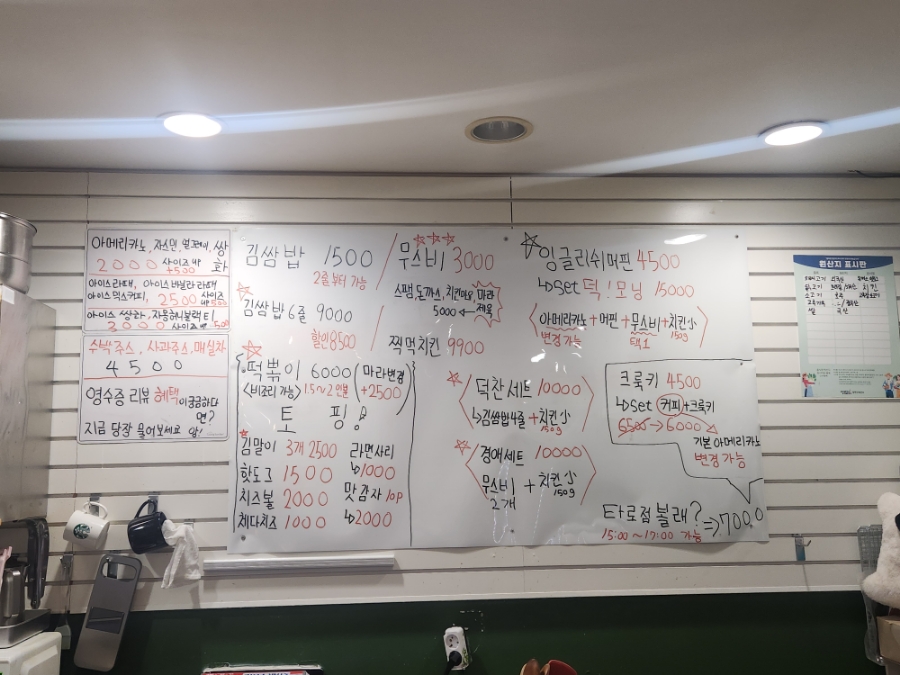 아메리카노, 자스민, 얼그레이, 쌍화
2000 사이즈 up +500
아이스라떼, 아이스바닐라라떼
아이스믹스커피, 2500 사이즈 up 500
3000 사이즈 up 500
수박주스, 사과주스, 매실차
4500
영수증 리뷰 혜택이 궁금하다면?
지금 당장 물어보세요
김쌈밥 1500
2줄부터 가능
김쌈밥 6줄 9000
할인 8500
떡볶이 6000 (마라변경 +2500)
<비조리 가능> 1.5~2인분
토핑
김말이 3개 2500
핫도그 1500
치즈볼 2000
체다치즈 1000
라면사리
↳1000
맛감자 10p
↳2000
무스비 3000
스팸, 돈까스, 치킨마요, 마라제육
5000 ←
찍먹치킨 9900
덕찬세트 10000
↳김쌈밥4줄 + 치킨小 150g
경애세트 10000
무스비 2개 + 치킨小 150g
잉글리쉬머핀 4500
↳set 떡!모닝 15000
<아메리카노+머핀+무스비+치킨小>
변경가능 택1 150g
크룩키 4500
↳set 커피+크룩키
6500 → 6000
기본 아메리카노
변경 가능
타로점 볼래? ⇒7,000
15:00~17:00 가능
원산지 표시판